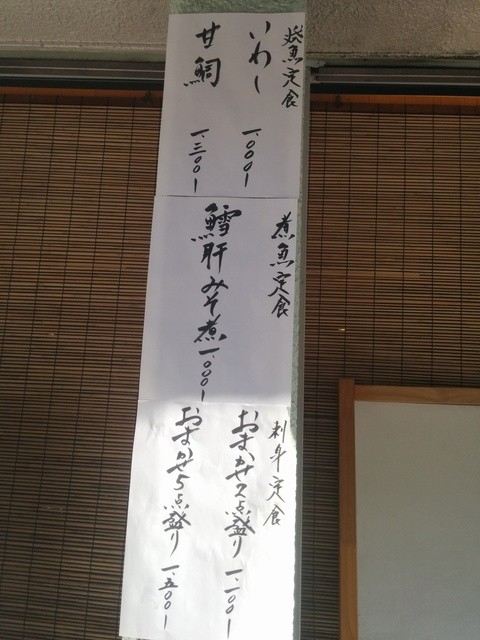 焼魚定食
いわし 一、〇〇〇ー
甘鯛 一、三〇〇ー
煮魚定食
鱈肝みそ煮 一、〇〇〇ー
刺身定食
おまかせ2点盛り 一、一〇〇ー
おまかせ5点盛り 一、五〇〇ー